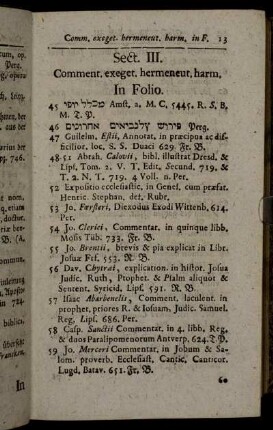 Comm. exeget. hermenent. harm. in F. 13
Sect. III.
Comment. exeget. hermeneut, harm.
In Folio.
45 מכלל יופי Amst, a. M. C, 5445. R. S, B,
M. T. P.
46 פירוש אחרונים Perg.
47 Guilielm, Estii, Annotat, in præcipua ac dif-
ficilior. loc, S. S. Duaci 629. Fr. B.
48-51 Abrah. Calovii, bibl. illustrat Dresd. &
Lips, Tom. 2. V. T. Edit, Secund, 719, &
T. 2. N. T. 719. 4 Voll. 2. Per.
52 Expositio ecclesiastic, in Genes, cum præfat.
Henric. Stephan, det, Rubr,
53 Jo. Fœrsteri, Diexodus Exodi Wittenb, 614.
Per.
54 Jo. Clerici, Comment, in quinque libb,
Mosis Tub. 733. Fr. B.
55 Jo. Brentii, brevis & pia explicat in Libr.
Josuæ Frf, 553. N. B.
56 Dav. Chytræi, explication. in histor. Josua
Judic. Ruth, Prophet. & Psalm aliquot &
Sentent. Syricid. Lips. 591. N. B.
57 Isaac Abarbenelis, Comment, luculent. in
prophet, priores R. & Iosuam, Judic. Samuel.
Reg. Lips. 686. Per.
58 Casp. Sanctii Commentar. in 4. libb, Reg,
& duos Paralipomenorum Antverp. 624. T. P.
59 Jo. Merceri Commentar, in Jobum & Sa-
lom. proverb, Ecclesiast, Cantic, Canticor.
Lugd, Batav. 651. Fr. B.
60
In